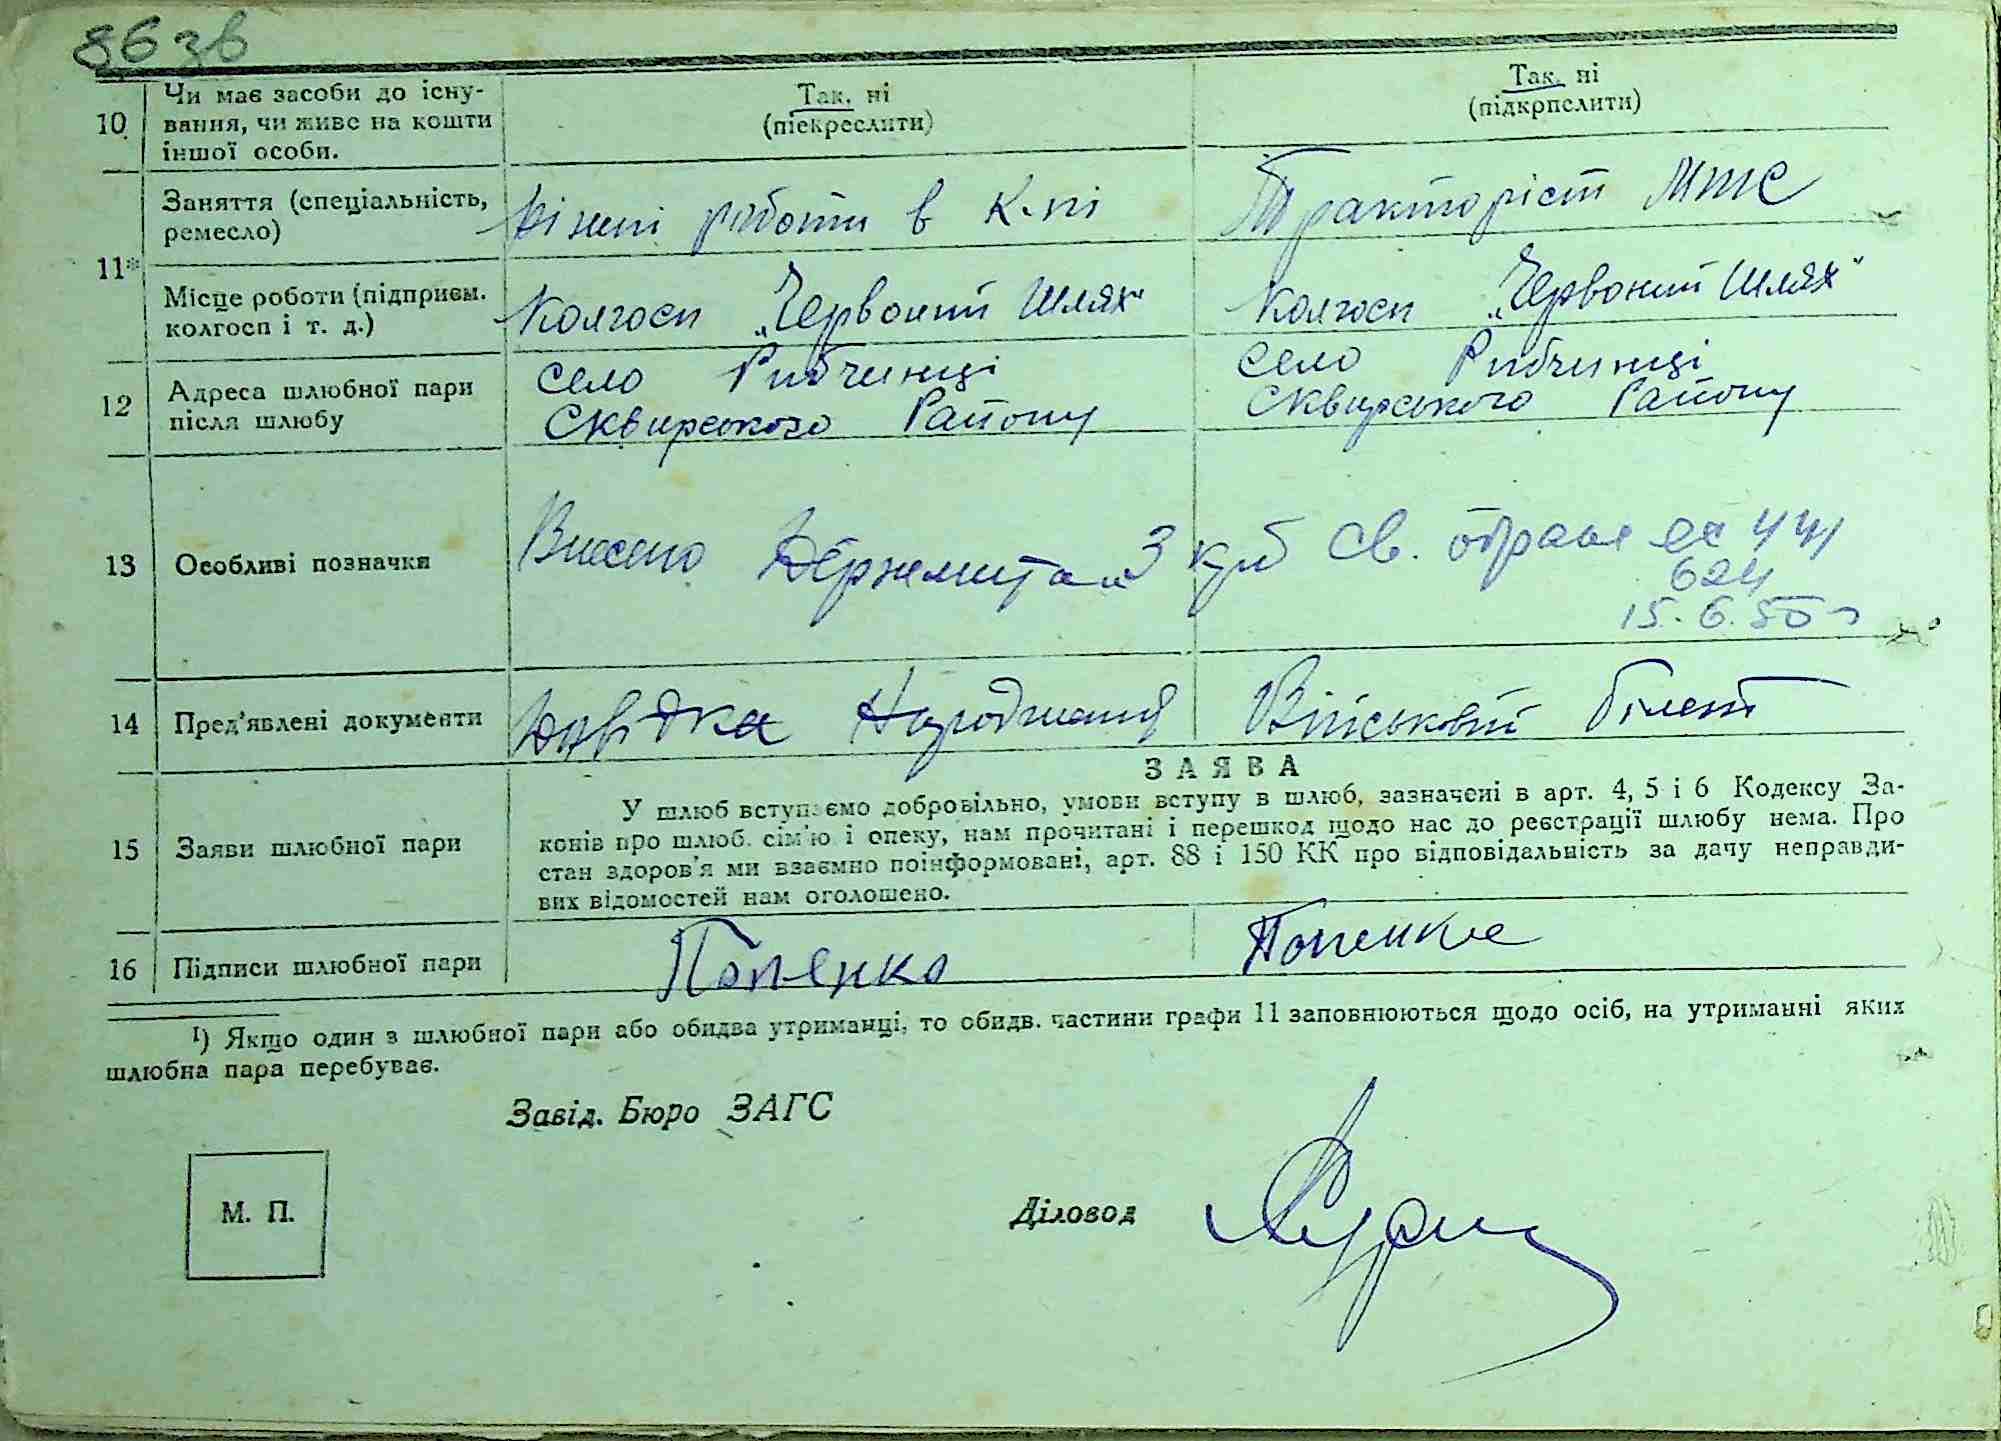 86 зв
10 Чи має засоби до існу-
вання, чи живе на кошти
іншої особи.
Так, ні
(піекреслити)
Так, ні
(підкрпслити)
11*
Заняття (спеціальність,
ремесло)
різні роботи в к-пі
Тракторіст МТС
Місце роботи (підприєм.
колгосп і т. д.)
Колгосп „Червоний Шлях"
Колгосп „Червоний Шлях"
12 Адреса шлюбної пари
після шлюбу
Село Рибчинці
Сквирського Району
Село Рибчинці
Сквирського Району
13 Особливі позначки
Внесено Держмита 3 куб Св.
624
15.6.50 г
14 Пред'явлені документи
Довідка Народження
Військовий білет
ЗАЯВА
15 Заяви шлюбної пари
У шлюб вступаємо добровільно, умови вступу в шлюб, зазначені в арт. 4, 5 і 6 Кодексу За-
конів про шлюб. сім'ю і опеку, нам прочитані і перешкод щодо нас до реєстрації шлюбу нема. Про
стан здоров'я ми взаємно поінформовані, арт. 88 і 150 КК про відповідальність за дачу неправди-
вих відомостей нам оголошено.
16 Підписи шлюбної пари
Попенко
Попенко
1) Якщо один з шлюбної пари або обидва утриманці, то обидв. частини графи 11 заповнюються щодо осіб, на утриманні яких
шлюбна пара перебуває.
Завід. Бюро ЗАГС
М. П.
Діловод